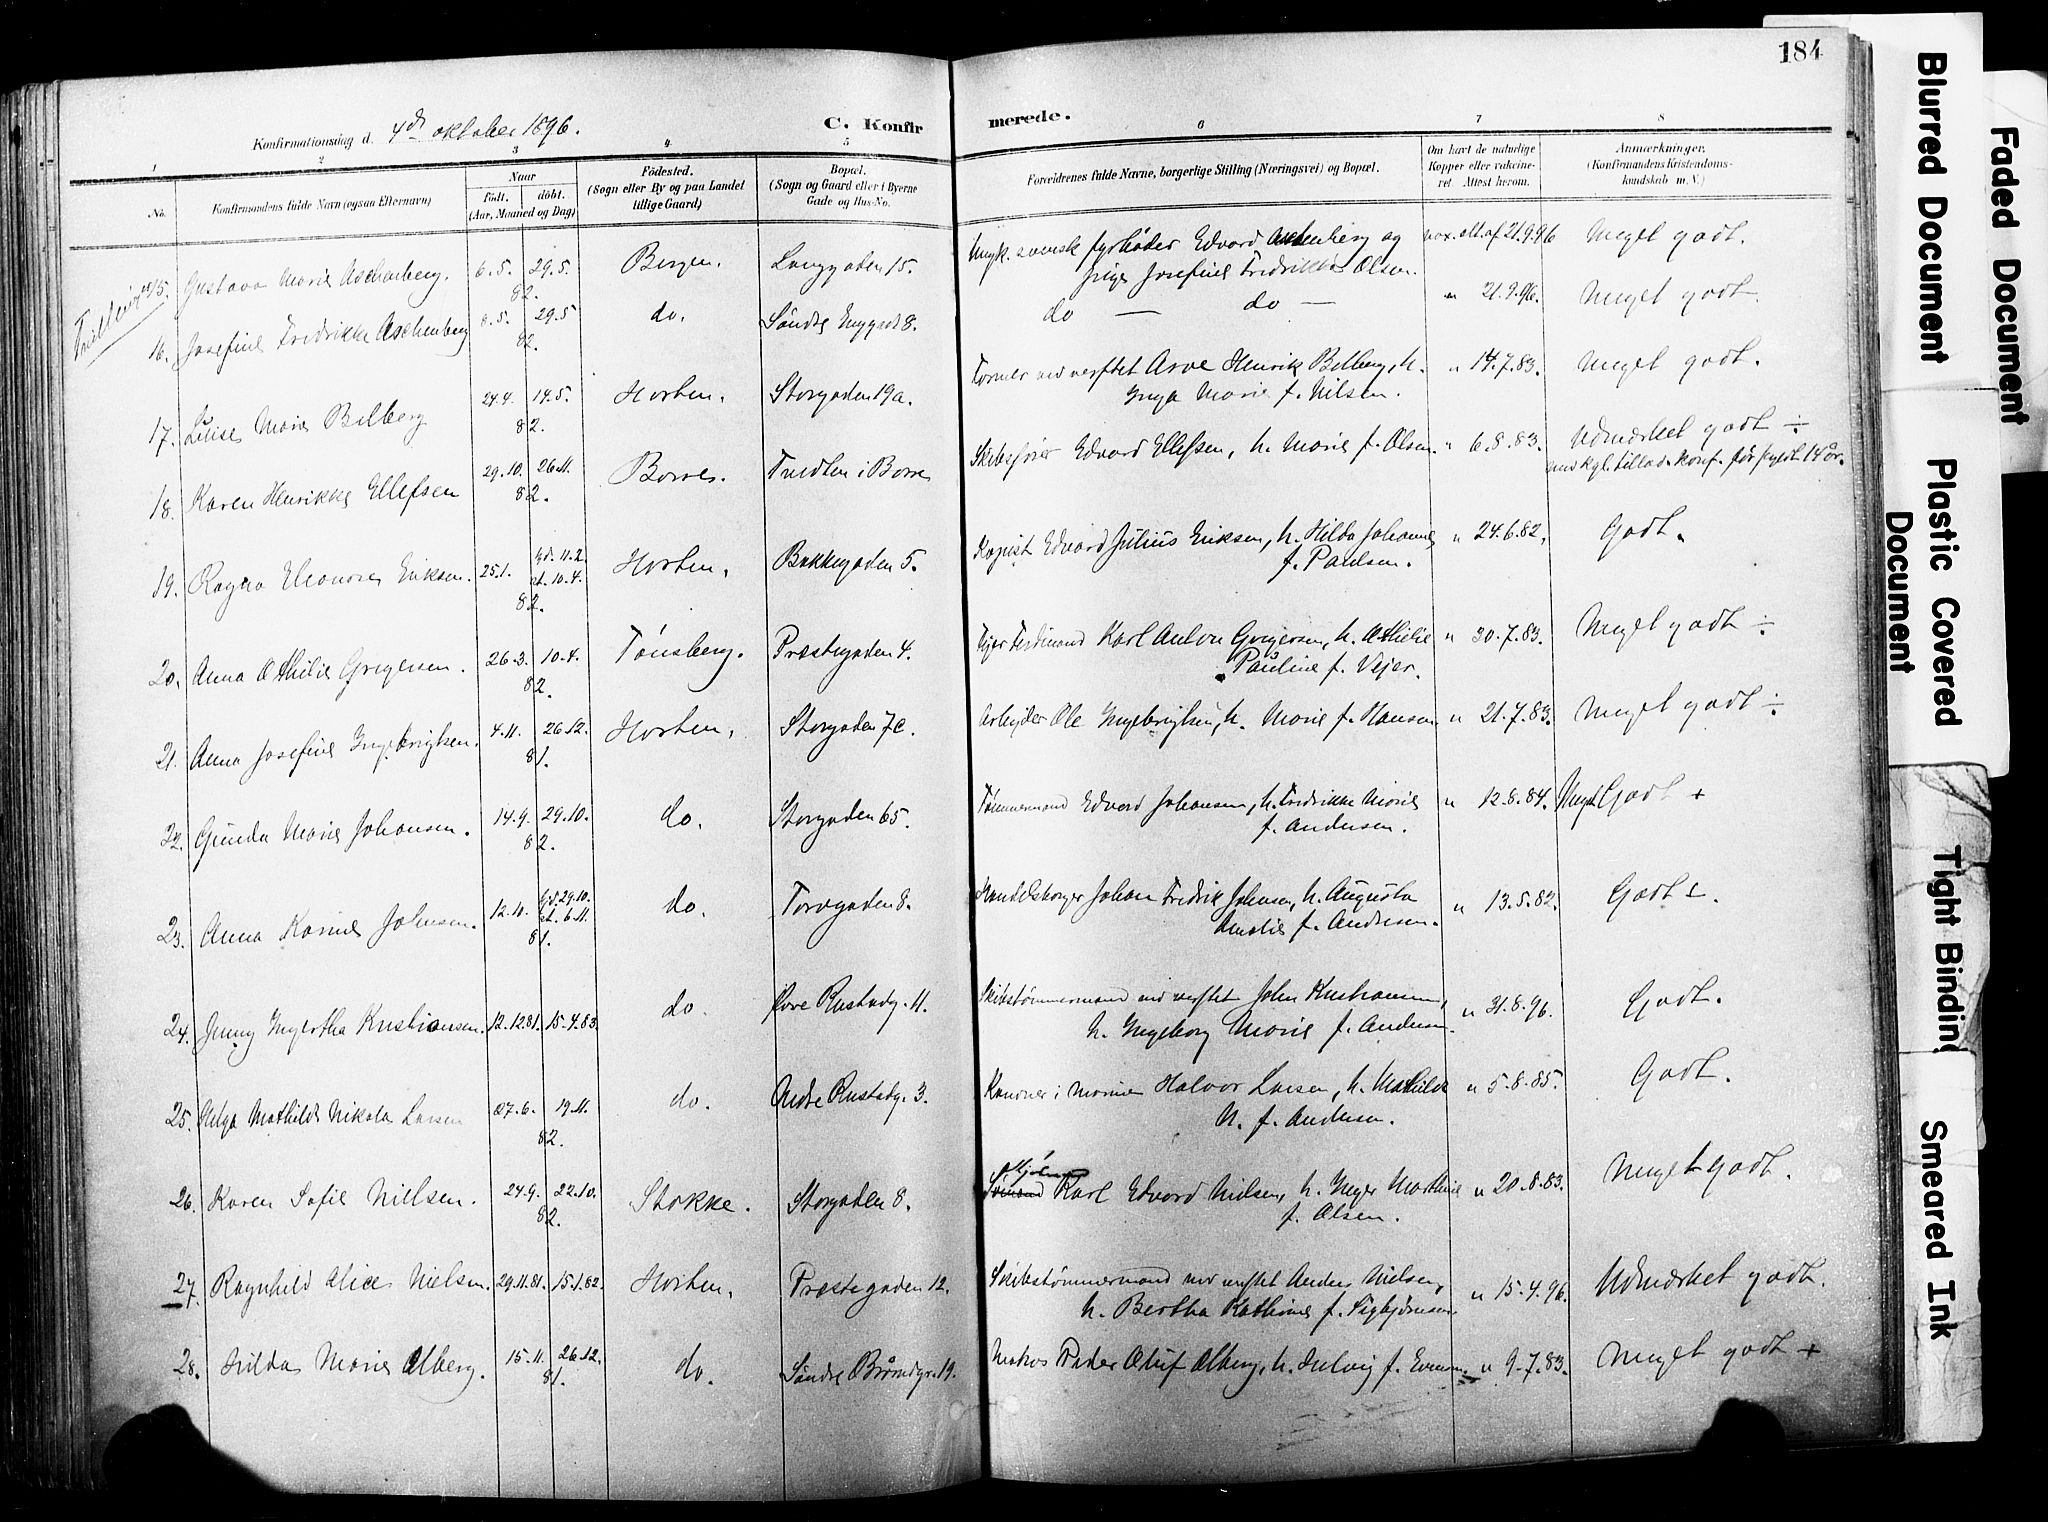 184
Konfirmationsdag d. 4de oktober 1896.
C. Konfirmerede.
1 2 3 4 5 6 7 8
No.
Konfirmandens fulde Navn (ogsaa Efternavn)
Naar
født. døbt.
(Aar, Maaned og Dag)
Fødested.
(Sogn eller By og paa Landet
tillige Gaard)
Bopæl.
(Sogn og Gaard eller i Byerne
Gade og Hus-No.
Forældrenes fulde Navne, borgerlige Stilling (Næringsvei) og Bopæl.
Om havt de naturlige
Kopper eller vakcine-
ret. Attest herom.
Anmærkninger.
(Konfirmandens Kristendoms-
kundskab m. V.)
15. Gustava Marie Aschenberg. 6.5. 29.5. 82. Bergen. Langgaden 15. svensk fyrbøder Edvard Aschenberg og
pige Josefine Fredrikke Olsen. vax. att. af 21.9.96 Meget godt.
16. Josefine Fredrikke Aschenberg 8.5. 29.5 82. do. Søndre Enggade 8. do — do — " 21.9.96. Meget godt.
17. Luise Marie Bilberg 24.4. 14.5. 82. Horten. Storgaden 19a. Former ved verftet Arve Henrik Bilberg, h.
Inga Marie f. Nilsen. " 14.7.83. Meget godt.
18. Karen Henrikke Ellefsen 29.10. 26.11. 82. Borre. i Borre Skibsfører Edvard Ellefsen, h. Marie f. Olsen. " 6.8.83. Udmærket godt ÷
med kgl. tillad. konf. før fyldt 15 år.
19. Ragna Eleonore Eriksen. 25.1. hd. 11.2. st. 10.4. 82. Horten. Bakkegaden 5. Kopist Edvard Julius Eriksen, h. Hilda Johanne
f. Paulsen. " 24.6.82. Godt.
20. Anna Othilie Gregersen. 26.3. 10.4. 82. Tønsberg. Præstegaden 4. Ferdinand Karl Anton Gregersen, h. Othilie
Pauline f. Vejer. " 30.7.83. Meget godt ÷
21. Anna Josefine Ingebrigtsen. 4.11. 26.12. 81. Horten. Storgaden 7c. Arbejder Ole Ingebrigtsen, h. Marie f. Hansen " 21.7.83. Meget godt ÷
22. Gunda Marie Johansen. 14.9. 29.10. 82. do. Storgaden 65. Tømmermand Edvard Johansen, h. Fredrikke Marie
f. Andersen. " 12.8.84. Meget Godt +
23. Anna Karine Johnsen. 12.10. hd. 29.10. st. 6.11. 81. do. Torvgaden 8. Handelsborger Johan Fredrik Johnsen, h. Augusta
Amalie f. Andersen. " 13.5.82. Godt ÷.
24. Jenny Ingertha Kristiansen. 12.12.81. 15.4.83. do. Øvre Rustadg. 11. Skibstømmermand ved verftet John Kristiansen,
h. Ingeborg Marie f. Andersen. " 31.8.96. Godt.
25. Helga Mathilde Nikola Larsen 27.6. 19.11. 82. do. Nedre Rustadg. 3. Kanoner i marinen Halvor Larsen, h. Mathilde
N. f. Andersen. " 5.8.85. Godt.
26. Karen Sofie Nielsen. 24.9. 22.10. 82. Stokke. Storgaden 8. Karl Edvard Nielsen, h. Inger Mathilde
f. Olsen. " 20.8.83. Meget godt.
27. Ragnhild Alice Nielsen. 29.11.81. 15.1.82. Horten. Præstegaden 12. Skibstømmermand ved verftet Anders Nielsen,
h. Bertha Kathrine f. Sigbjørnsen " 15.4.96. Udmærket godt.
28. Hilda Marie Olberg. 15.11. 26.12. 81. do. Søndre Brårudgr. 19. Matros Peder Oluf Olberg, h. Hedvig f. Evensen. " 9.7.83. Meget godt +
Blurred Document
Faded Document
Plastic Covered
Document
Tight Binding
Smeared Ink